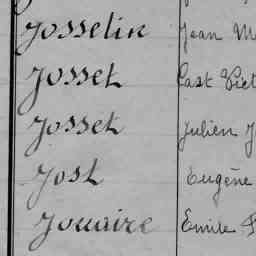 Josselin Jean M
Josset Cast Vict
Josset Julien J
Jost Eugène
Jouaire Emile